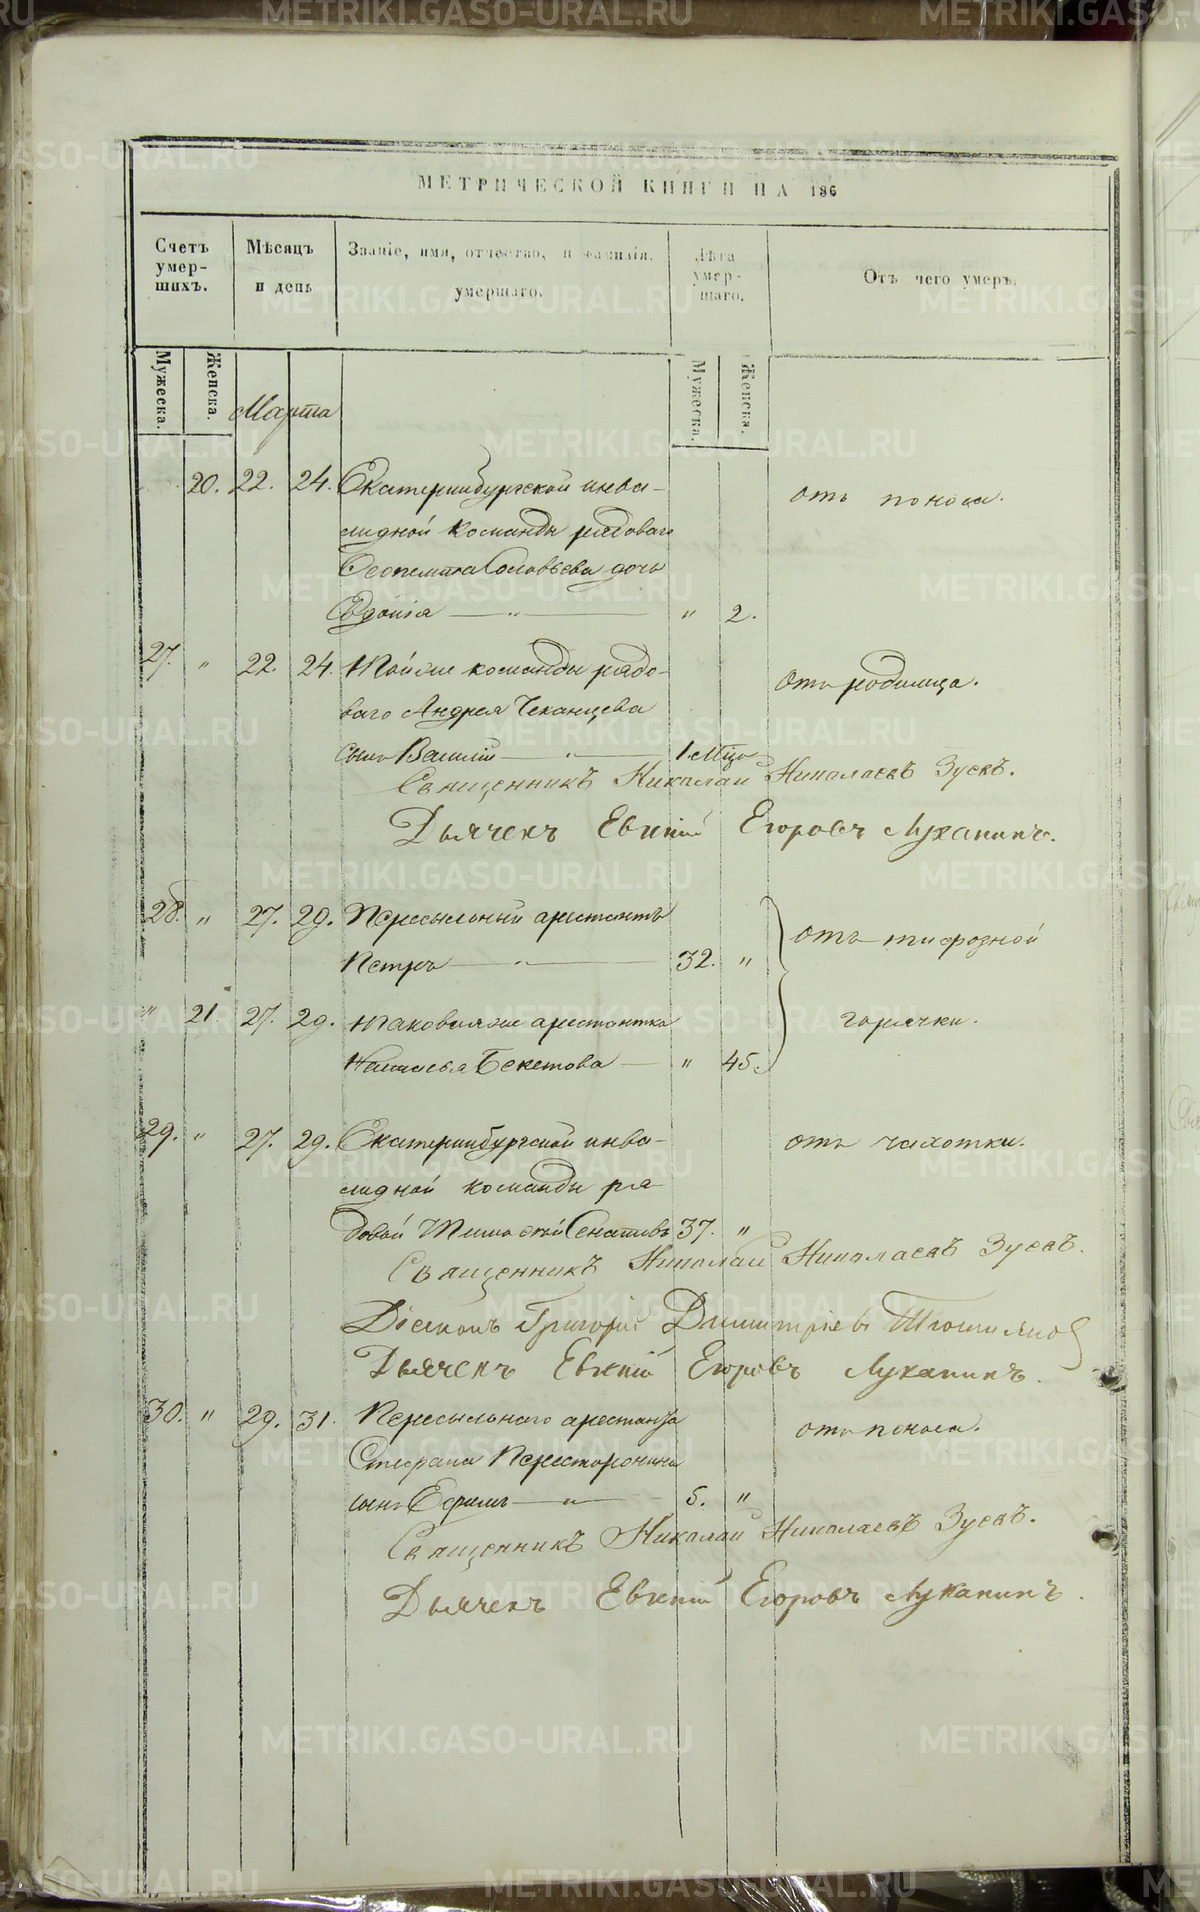 МЕТРИЧЕСКОЙ КНИГИ НА 186
Счетъ умер-шихъ.
Мѣсяцъ и день
Званіе, имя, отчество, и фамилія умершаго.
Лѣта умер-шаго.
Отъ чего умеръ.
Мужеска. Женска. Марта Мужеска. Женска.
20. 22. 24. Екатеринбургской инва-
лидной команды рядоваго
Соловьева дочь
Евдокія — " — " 2.
отъ поноса.
27. " 22. 24. Той же команды рядо-
ваго Андрея Чеканцева
сынъ Василій — " — 1 мѣся
отъ родимца.
Священникъ Николай Николаевъ Зуевъ.
Дьячекъ Евгній Егоровъ Луканинъ.
28. " 27. 29. Пересыльный арестантъ
Петръ — " — 32. "
отъ тифозной
" 21. 27. 29. таковая же арестантка
Наталья Бекетова — " 45.
горячки.
29. " 27. 29. Екатеринбургской инва-
лидной команды ря-
довой 37. "
отъ чахотки.
Священникъ Николай Николаевъ Зуевъ.
Діаконъ Григорій Димитріевъ
Дьячекъ Евгній Егоровъ Луканинъ.
30. " 29. 31. Пересыльнаго арестанта
Стефана
сынъ Ефимъ — " — 5. "
отъ поноса.
Священникъ Николай Николаевъ Зуевъ.
Дьячекъ Евгній Егоровъ Луканинъ.
METRIKI.GASO-URAL.RU